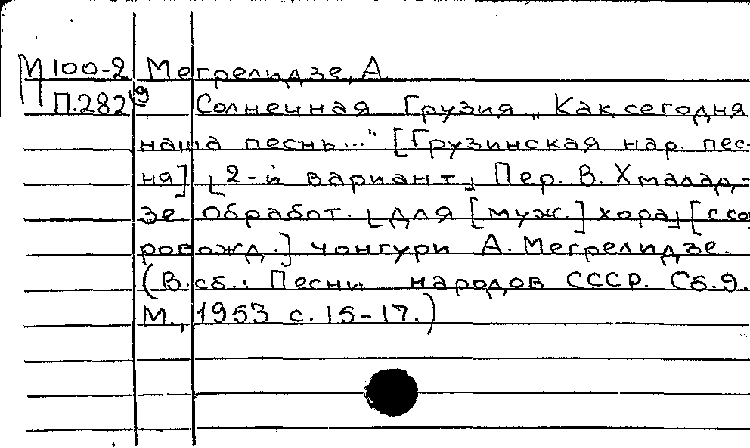 М 100-2 Мегрелидзе, А.
П.282/9 Солнечная Грузия „Как сегодня
наша песнь..." [Грузинская нар. пес-
ня] ⌊2-й вариант⌋ Пер. В. Хмалад-
зе. Обработ. ⌊для [муж.] хора⌋ [с со-
ровожд.] чонгури А. Мегрелидзе.
(В сб.: Песни народов СССР. Сб. 9.
М., 1953 с. 15-17.)